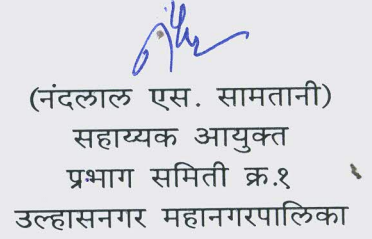 (नंदलाल एस. सामतानी)
सहाय्यक आयुक्त
प्रभाग समिती क्र.१
उल्हासनगर महानगरपालिका